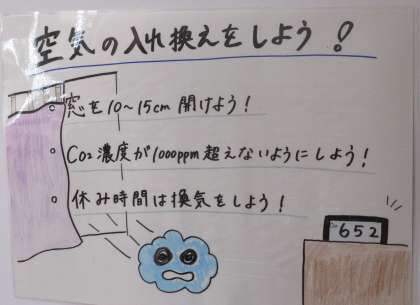 空気の入れ換えをしよう!
窓を10〜15cm開けよう!
CO2濃度が1000ppm超えないようにしよう!
休み時間は換気をしよう!
652